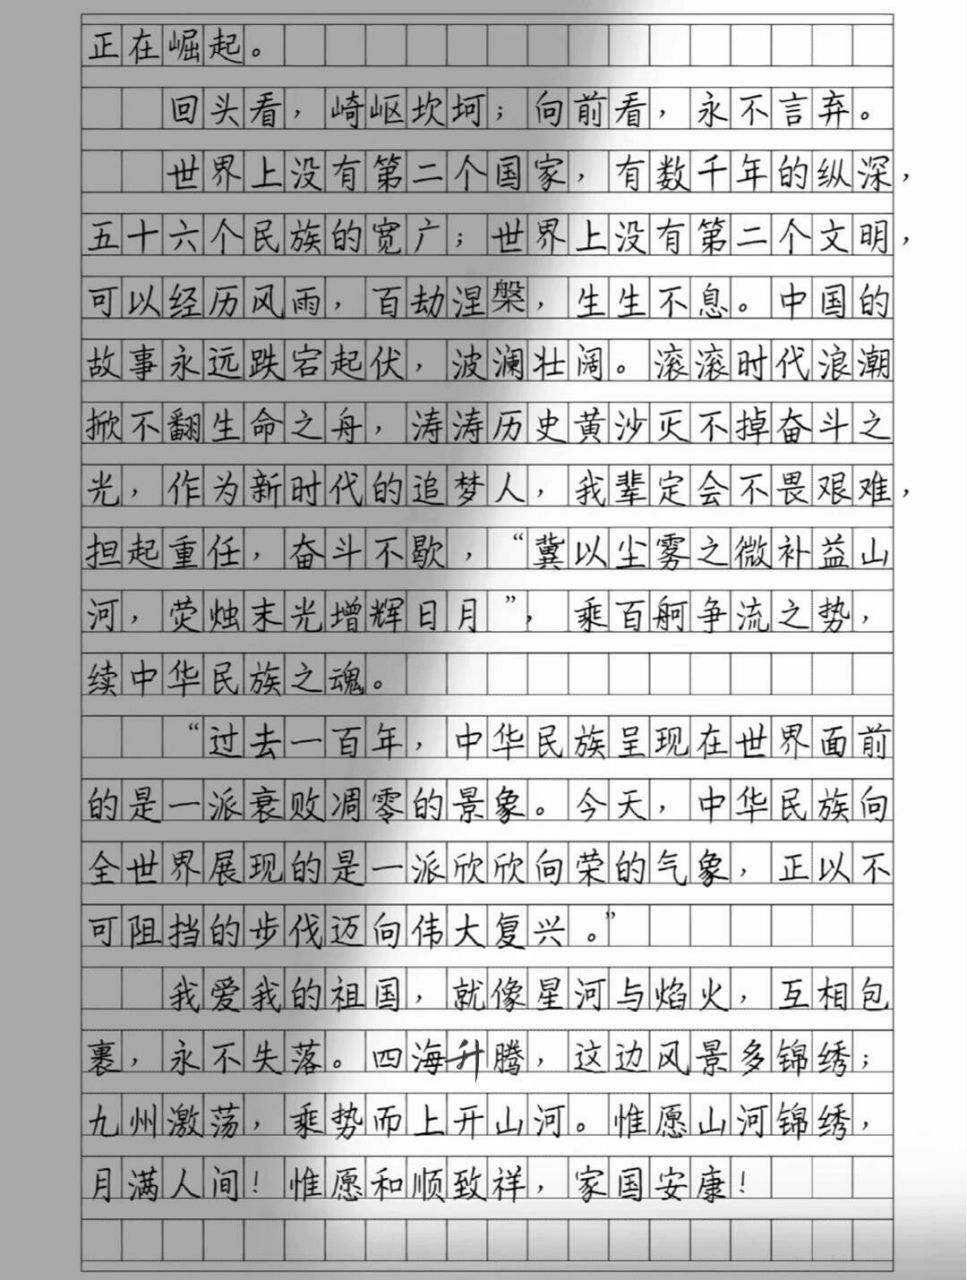 正在崛起。
回头看，崎岖坎坷；向前看，永不言弃。
世界上没有第二个国家，有数千年的纵深，
五十六个民族的宽广；世界上没有第二个文明，
可以经历风雨，百劫涅槃，生生不息。中国的
故事永远跌宕起伏，波澜壮阔。滚滚时代浪潮
掀不翻生命之舟，涛涛历史黄沙灭不掉奋斗之
光，作为新时代的追梦人，我辈定会不畏艰难，
担起重任，奋斗不歇，“冀以尘雾之微补益山
河，荧烛末光增辉日月”，乘百舸争流之势，
续中华民族之魂。
“过去一百年，中华民族呈现在世界面前
的是一派衰败凋零的景象。今天，中华民族向
全世界展现的是一派欣欣向荣的气象，正以不
可阻挡的步伐迈向伟大复兴。”
我爱我的祖国，就像星河与焰火，互相包
裹，永不失落。四海升腾，这边风景多锦绣；
九州激荡，乘势而上开山河。惟愿山河锦绣，
月满人间！惟愿和顺致祥，家国安康！